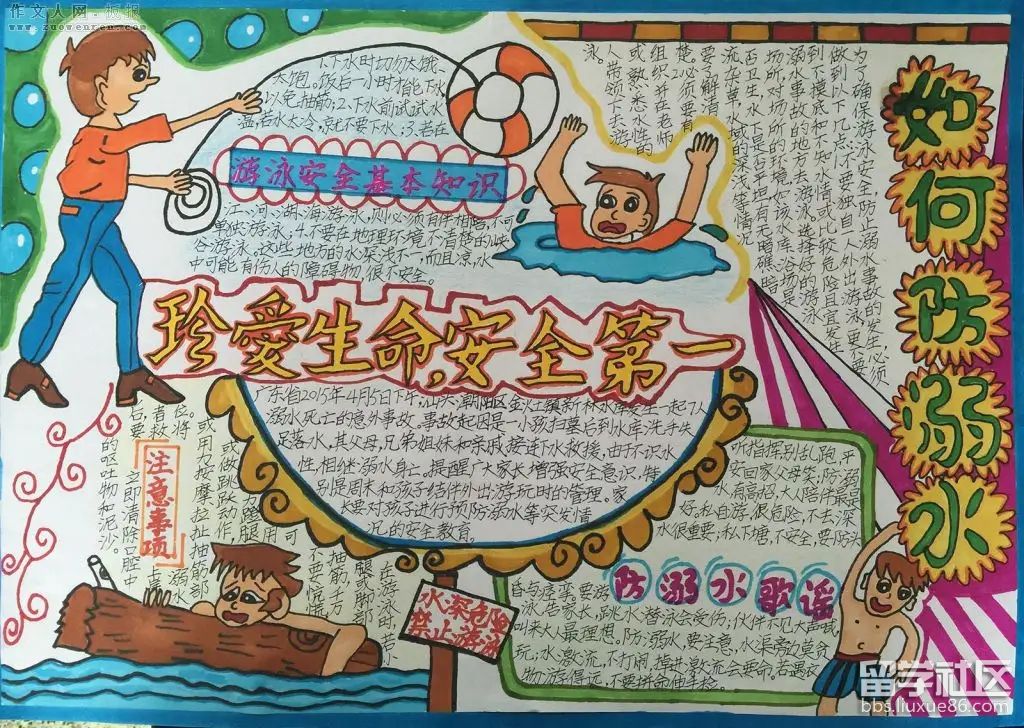 作文人网·板报
www.zuowenren.com
1、下水时切勿太饿、
太饱。饭后一小时才能下水,
以免抽筋;2、下水前试试水
温,若水太冷,就不要下水;3、若在
游泳安全基本知识
江、河、湖、海游泳,则必须有伴相陪,不可
单独游泳;4、不要在地理环境不清楚的峡
谷游泳。这些地方的水深浅不一,而且凉,水
中可能有伤人的障碍物,很不安全。
如何防溺水
为了确保游泳安全,防止溺水事故的发生,必须
做到以下几点:不要独自一人外出游泳,更不要
到不摸底和不知水情或比较危险且宜发生
溺水事故的地方去游泳。选择好的游泳
场所,对场所的环境,如该水库、浴场是
否卫生,水下是否平坦,有无暗礁、暗
流、杂草,水域的深浅等情况
要了解清
楚。2必须要有
组织并在老师
或熟悉水性的
人带领下去游
泳。
珍爱生命,安全第一
广东省2015年4月5日下午,汕头,潮阳区金灶镇新林水库发生一起7人
溺水死亡的意外事故。事故起因是一小孩扫墓后到水库洗手失
足落水,其父母,兄弟姐妹和亲戚接连下水救援,由于不识水
性,相继溺水身亡,提醒广大家长增强安全意识,特
别是周末和孩子结伴外出游玩时的管理。家
长要对孩子进行预防溺水等突发情
况的安全教育。
注意事项
在游泳时,若小
腿或脚部
抽筋,千万
不要惊慌
可用
或做跳跃动作,
或用力按摩、拉扯抽筋部
位。将溺水
者救
后,要
立即清除口腔中
的呕吐物和泥沙。
水深危险
禁止游泳
防溺水歌谣
听指挥,别乱跑,平
安回家父母笑;防溺
水,有高招,大人陪伴最
好,私自游,很危险,不去深
水很重要;私下塘,不安全,要
游泳告家长,跳水潜泳会受伤;伙伴不见大声喊,
叫来大人最理想,防溺水,要注意,水渠旁边莫贪
玩;水激流,不打闹,掉进激流会要命;若遇衣
物游得远,不要拼命伸手捡。
留学社区
bbs.liuxue86.com